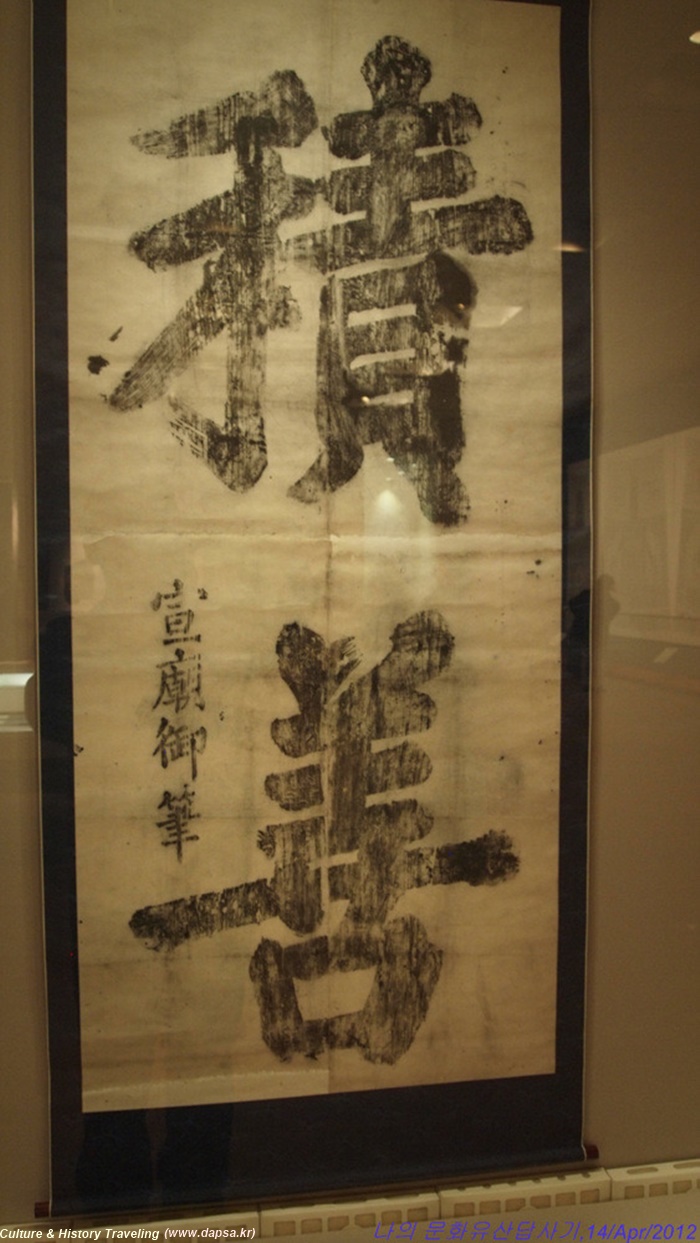 積善
宣廟御筆
Culture & History Traveling (www.dapsa.kr)
나의 문화유산답사기,14/Apr/2012